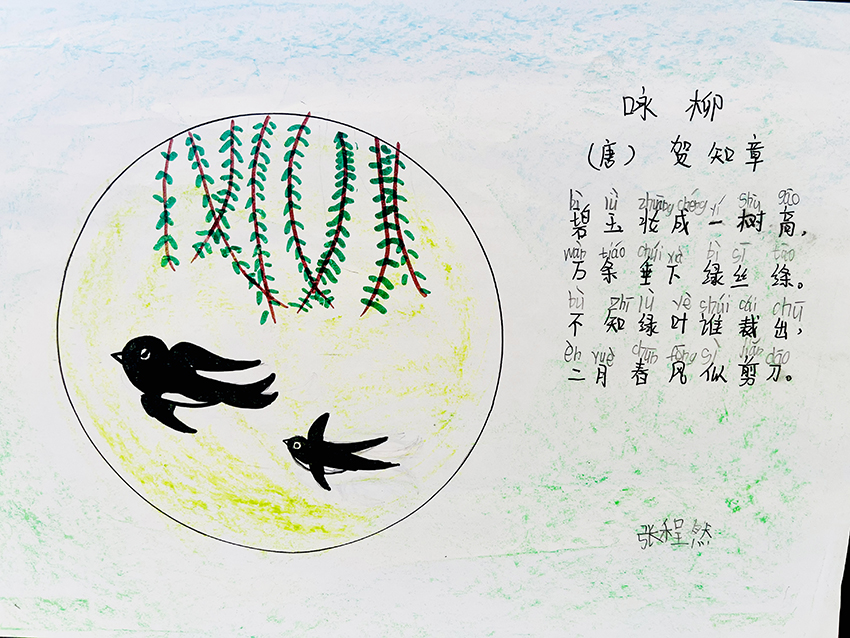 咏柳
(唐) 贺知章
bì yù zhuāng chéng yí shù gāo
碧玉妆成一树高,
wàn tiáo chuí xà bì sī tāo
万条垂下绿丝绦。
bù zhī lǜ yè shúi cái chū
不知绿叶谁裁出,
èr yuè chūn fēng sì jiǎn dāo
二月春风似剪刀。
张程然